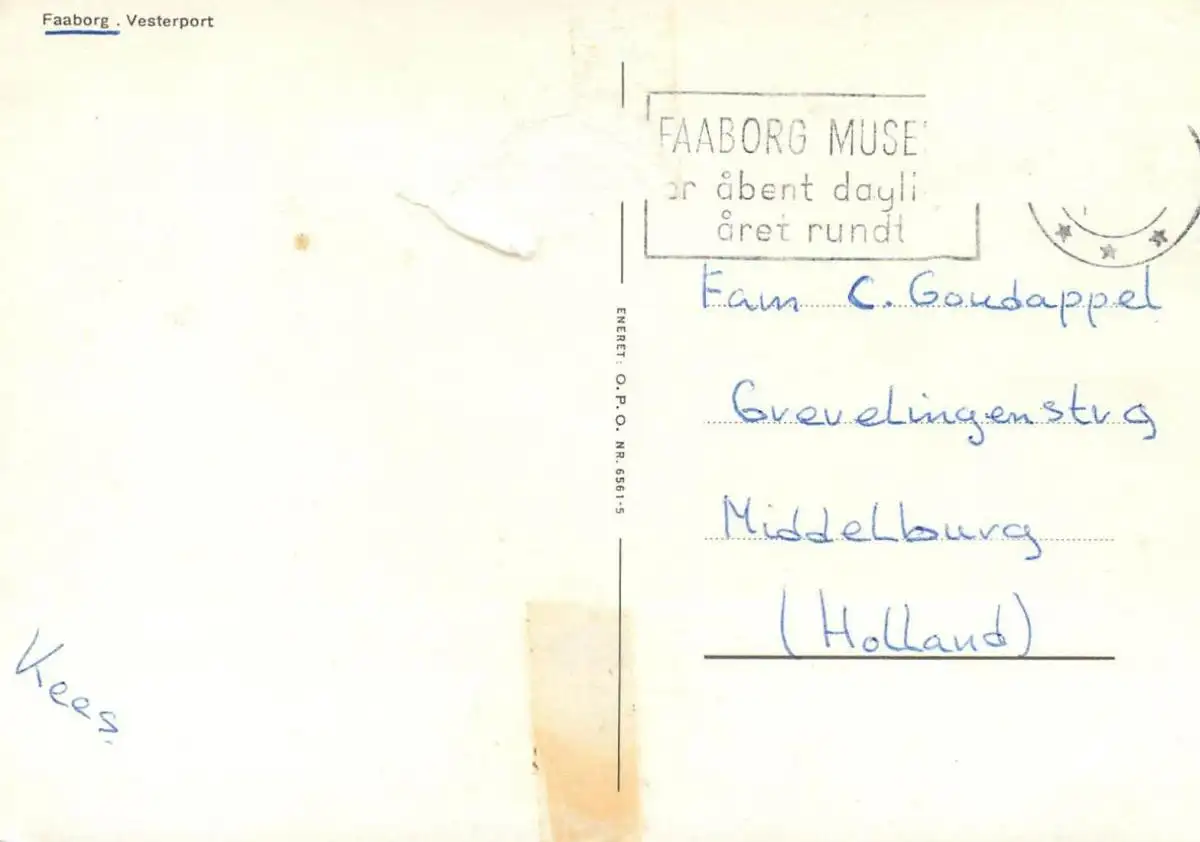 Faaborg . Vesterport
FAABORG MUSE
er åbent dagli
året rundt
Fam C. Goudappel
Grevelingenstrg
Middelburg
(Holland)
ENERET: O.P.O. NR. 6561-5
Kees.